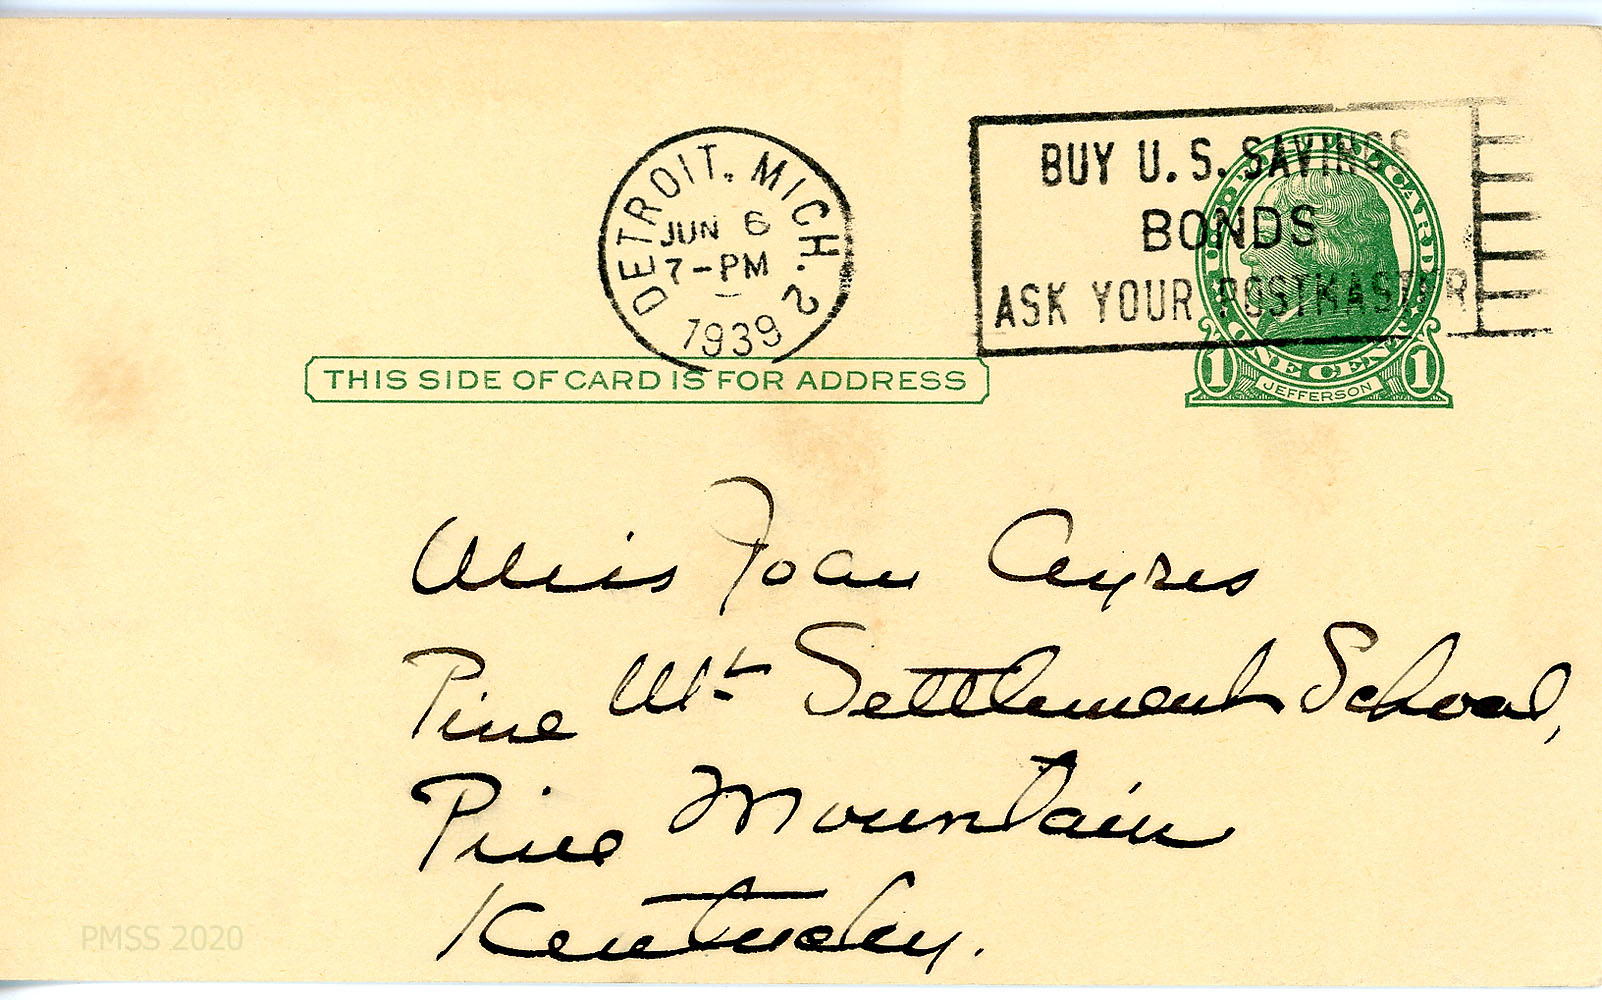 DETROIT, MICH. 2
JUN 6
7-PM
1939
BUY U.S. SAVINGS
BONDS
ASK YOUR POSTMASTER
U.S. POSTAL CARD
ONE CENT
1 JEFFERSON 1
THIS SIDE OF CARD IS FOR ADDRESS
Miss Joan Ayres
Pine Mt Settlement School,
Pine Mountain
Kentucky.
PMSS 2020